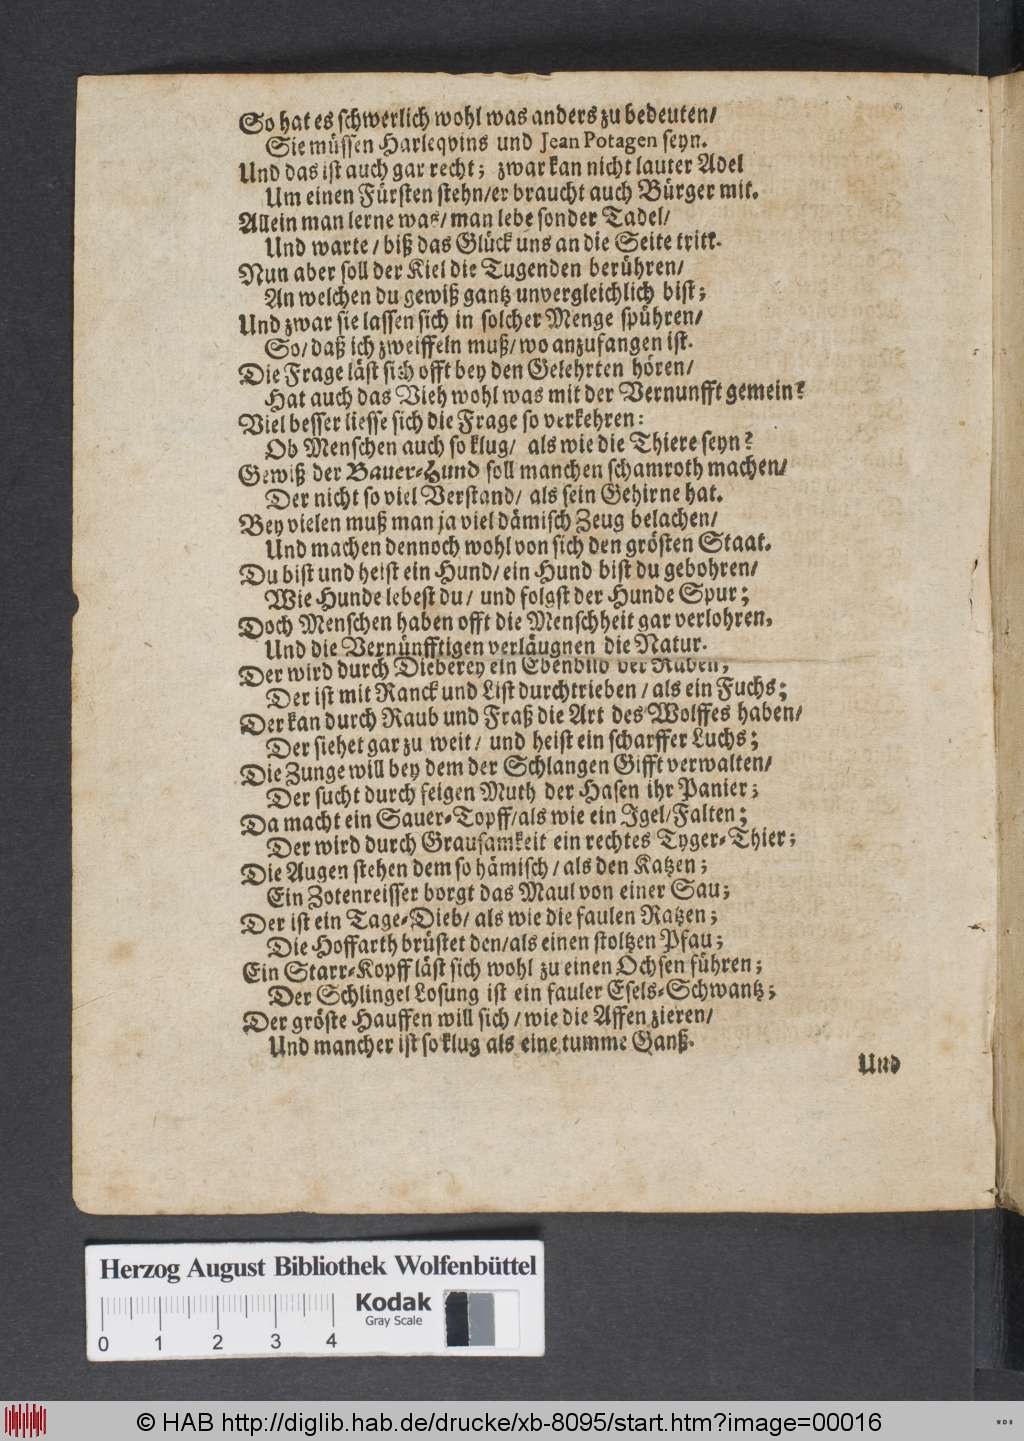 So hat es schwerlich wohl was anders zu bedeuten/
Sie müssen Harleqvins und Jean Potagen seyn.
Und das ist auch gar recht; zwar kan nicht lauter Adel
Um einen Fürsten stehn/er braucht auch Bürger mit.
Allein man lerne was/man lebe sonder Tadel/
Und warte/biß das Glück uns an die Seite tritt.
Nun aber soll der Kiel die Tugenden berühren/
An welchen du gewiß gantz unvergleichlich bist;
Und zwar sie lassen sich in solcher Menge spühren/
So/daß ich zweiffeln muß/wo anzufangen ist.
Die Frage läst sich offt bey den Gelehrten hören/
Hat auch das Vieh wohl was mit der Vernunfft gemein?
Viel besser liesse sich die Frage so verkehren:
Ob Menschen auch so klug/ als wie die Thiere seyn?
Gewiß der Bauer-Hund soll manchen schamroth machen/
Der nicht so viel Verstand/ als sein Gehirne hat.
Bey vielen muß man ja viel dämisch Zeug belachen/
Und machen dennoch wohl von sich den grösten Staat.
Du bist und heist ein Hund/ein Hund bist du gebohren/
Wie Hunde lebest du/ und folgst der Hunde Spur;
Doch Menschen haben offt die Menschheit gar verlohren,
Und die Vernünfftigen verläugnen die Natur.
Der wird durch Dieberey ein Ebenbild der Raben;
Der ist mit Ranck und List durchtrieben/als ein Fuchs;
Der kan durch Raub und Fraß die Art des Wolffes haben/
Der siehet gar zu weit/ und heist ein scharffer Luchs;
Die Zunge will bey dem der Schlangen Gifft verwalten/
Der sucht durch feigen Muth der Hasen ihr Panier;
Da macht ein Sauer-Topff/als wie ein Igel/Falten;
Der wird durch Grausamkeit ein rechtes Tyger-Thier;
Die Augen stehen dem so hämisch/als den Katzen;
Ein Zotenreisser borgt das Maul von einer Sau;
Der ist ein Tage-Dieb/als wie die faulen Ratzen;
Die Hoffarth brüstet den/als einen stoltzen Pfau;
Ein Starr-Kopff läst sich wohl zu einen Ochsen führen;
Der Schlingel Losung ist ein fauler Esels-Schwantz;
Der gröste Hauffen will sich/wie die Affen zieren/
Und mancher ist so klug als eine tumme Ganß.
Und
Herzog August Bibliothek Wolfenbüttel
Kodak
Gray Scale
0 1 2 3 4
© HAB http://diglib.hab.de/drucke/xb-8095/start.htm?image=00016
WDB